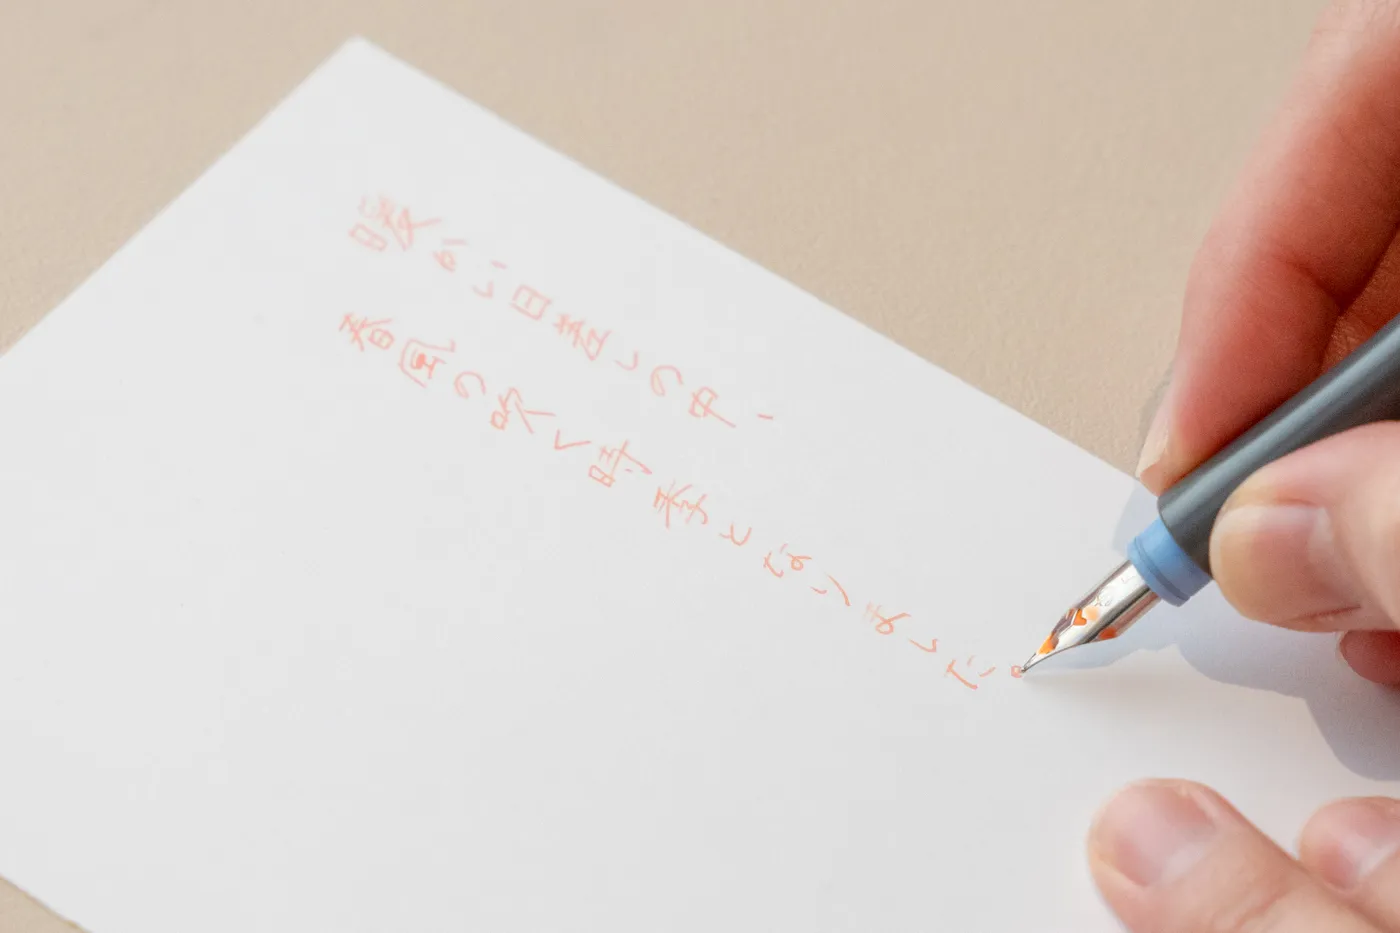 暖かい日差しの中、
春風の吹く時季となりました。